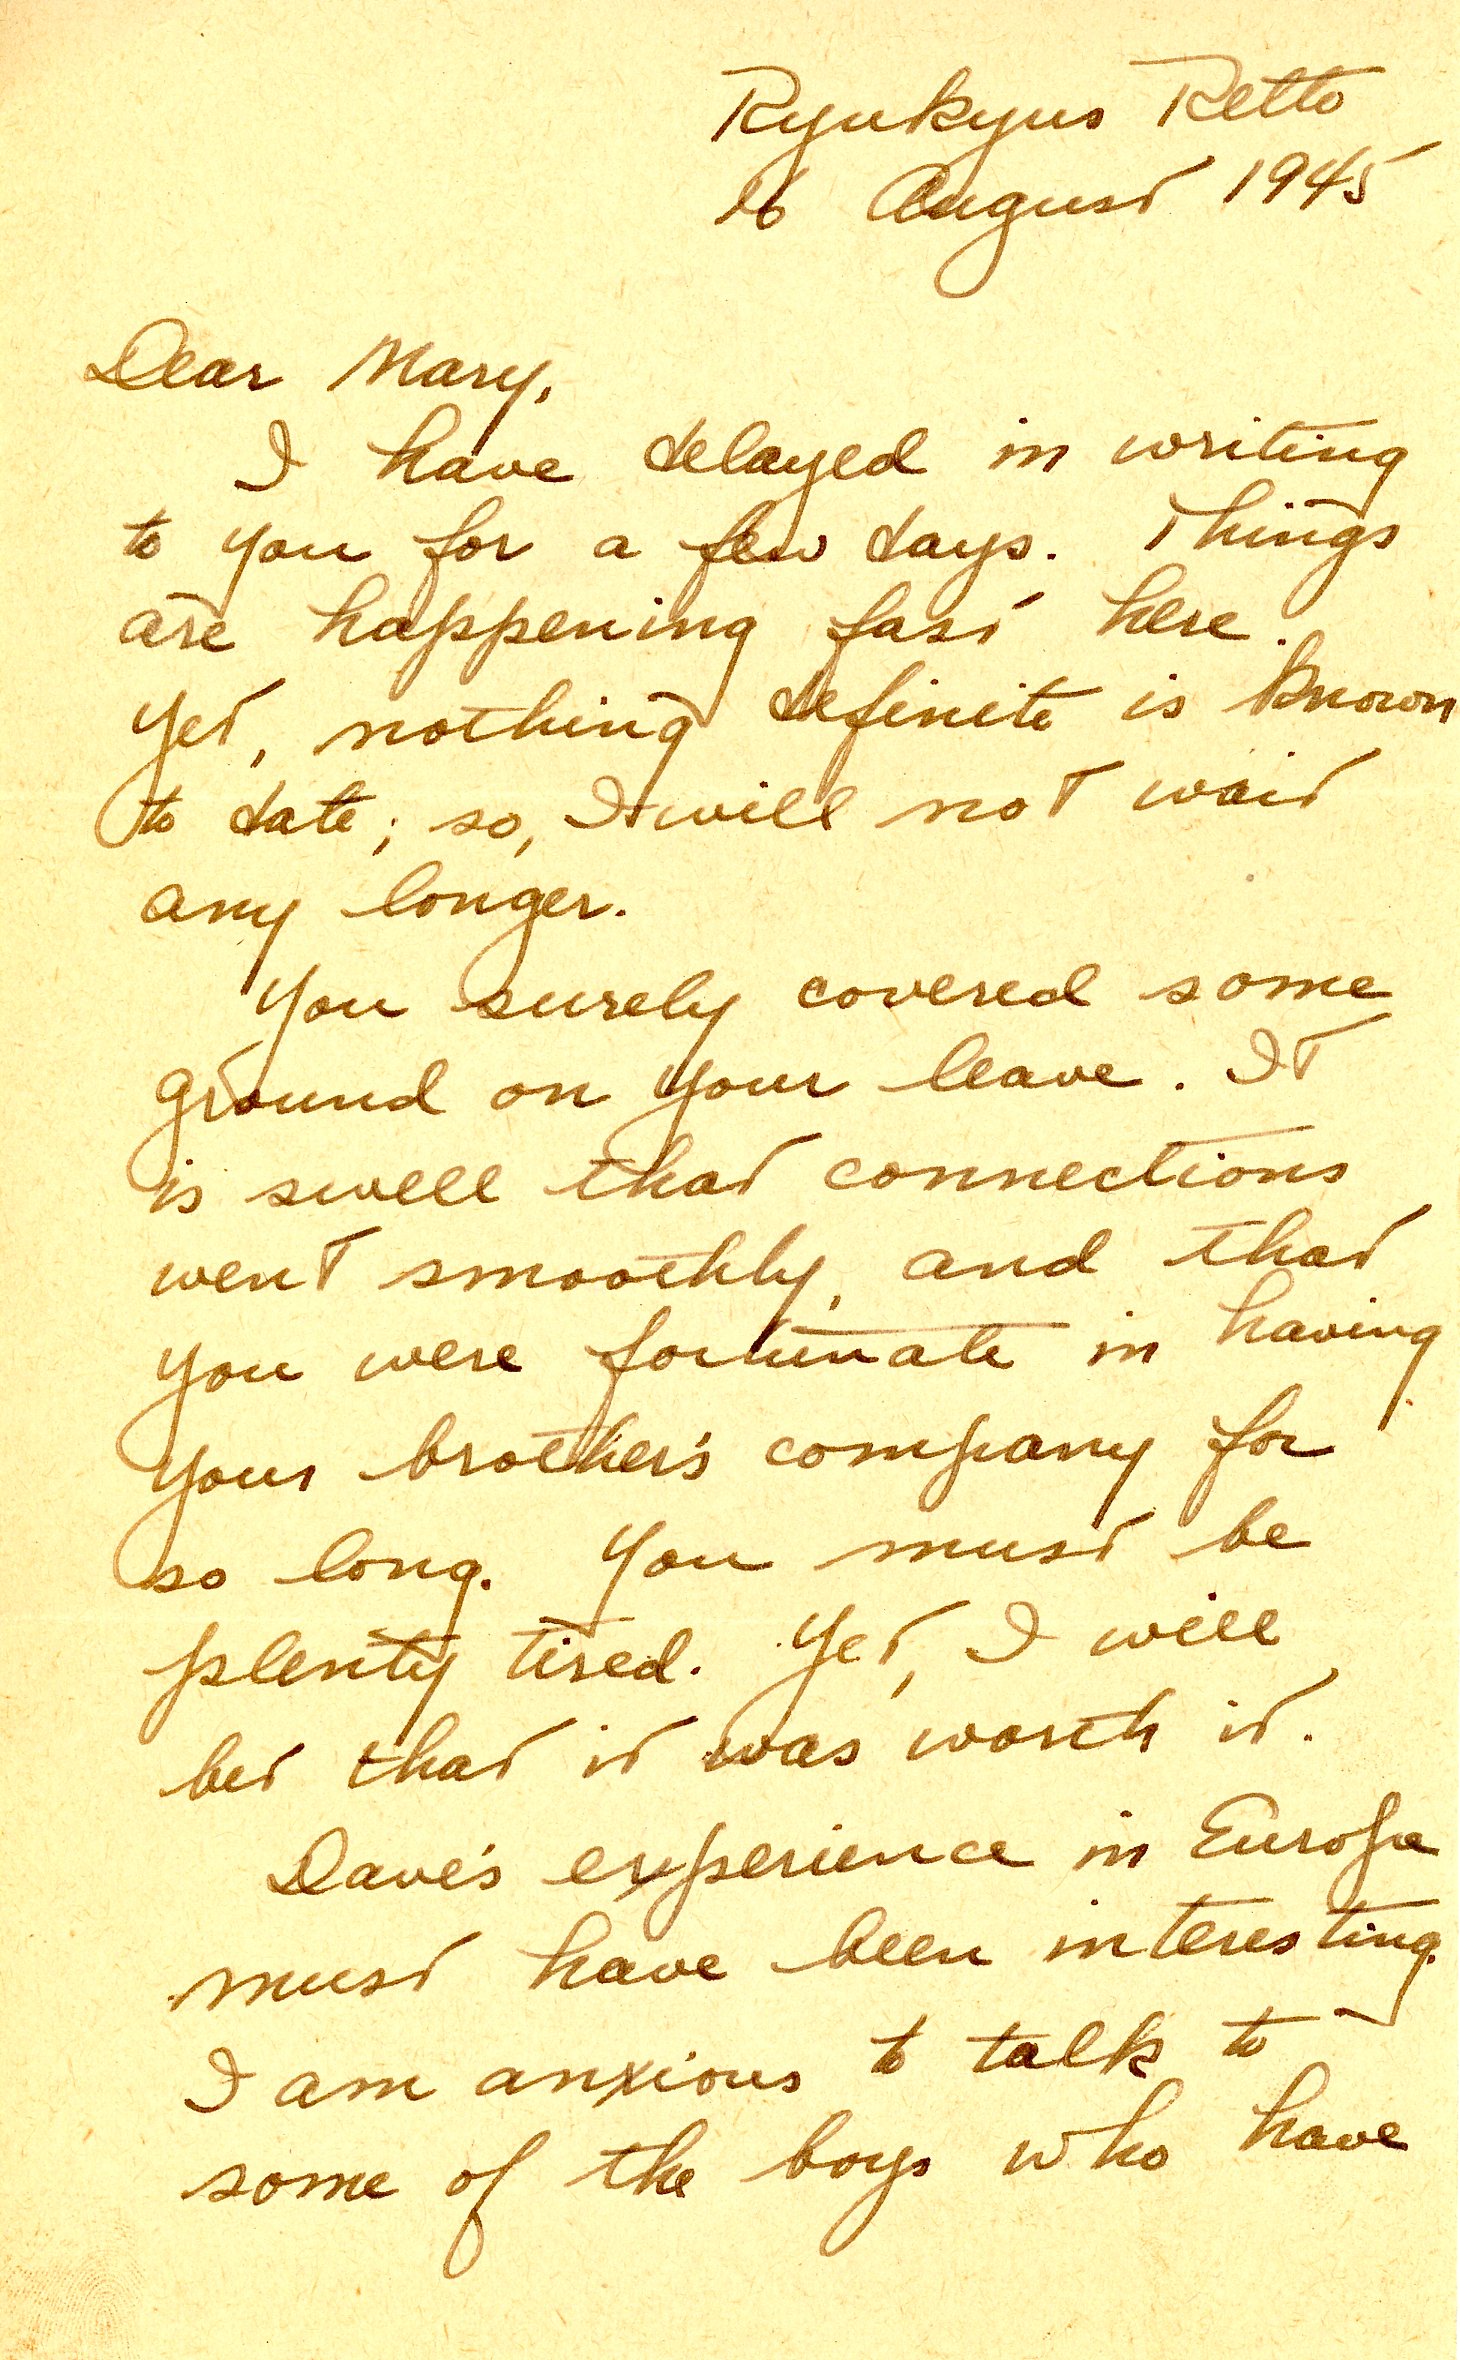 Ryukyus Retto
16 August 1945
Dear Mary,
I have delayed in writing
to you for a few days. Things
are happening fast here.
Yet, nothing definite is known
to date; so, I will not wait
any longer.
You surely covered some
ground on your leave. It
is swell that connections
went smoothly, and that
you were fortunate in having
your brother's company for
so long. You must be
plenty tired. Yet, I will
bet that it was worth it.
Dave's experience in Europe
must have been interesting.
I am anxious to talk to
some of the boys who have